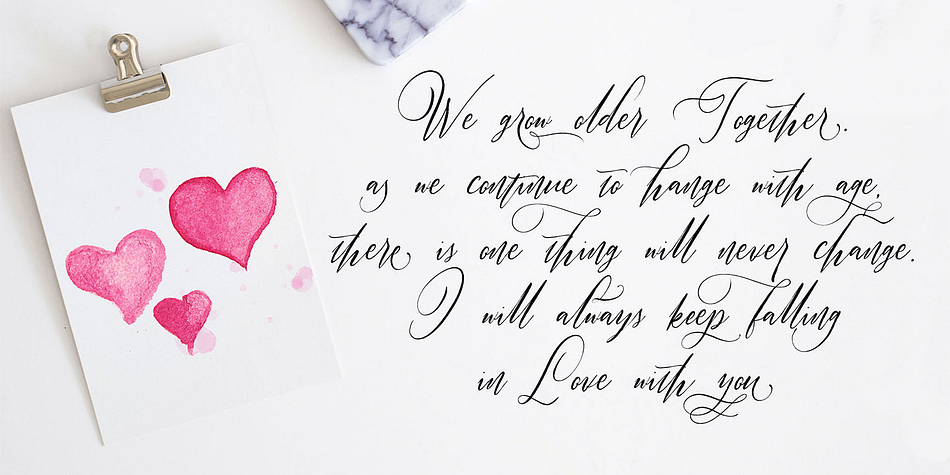 We grow older Together.
as we continue to hange with age,
there is one thing will never change.
I will always keep falling
in Love with you